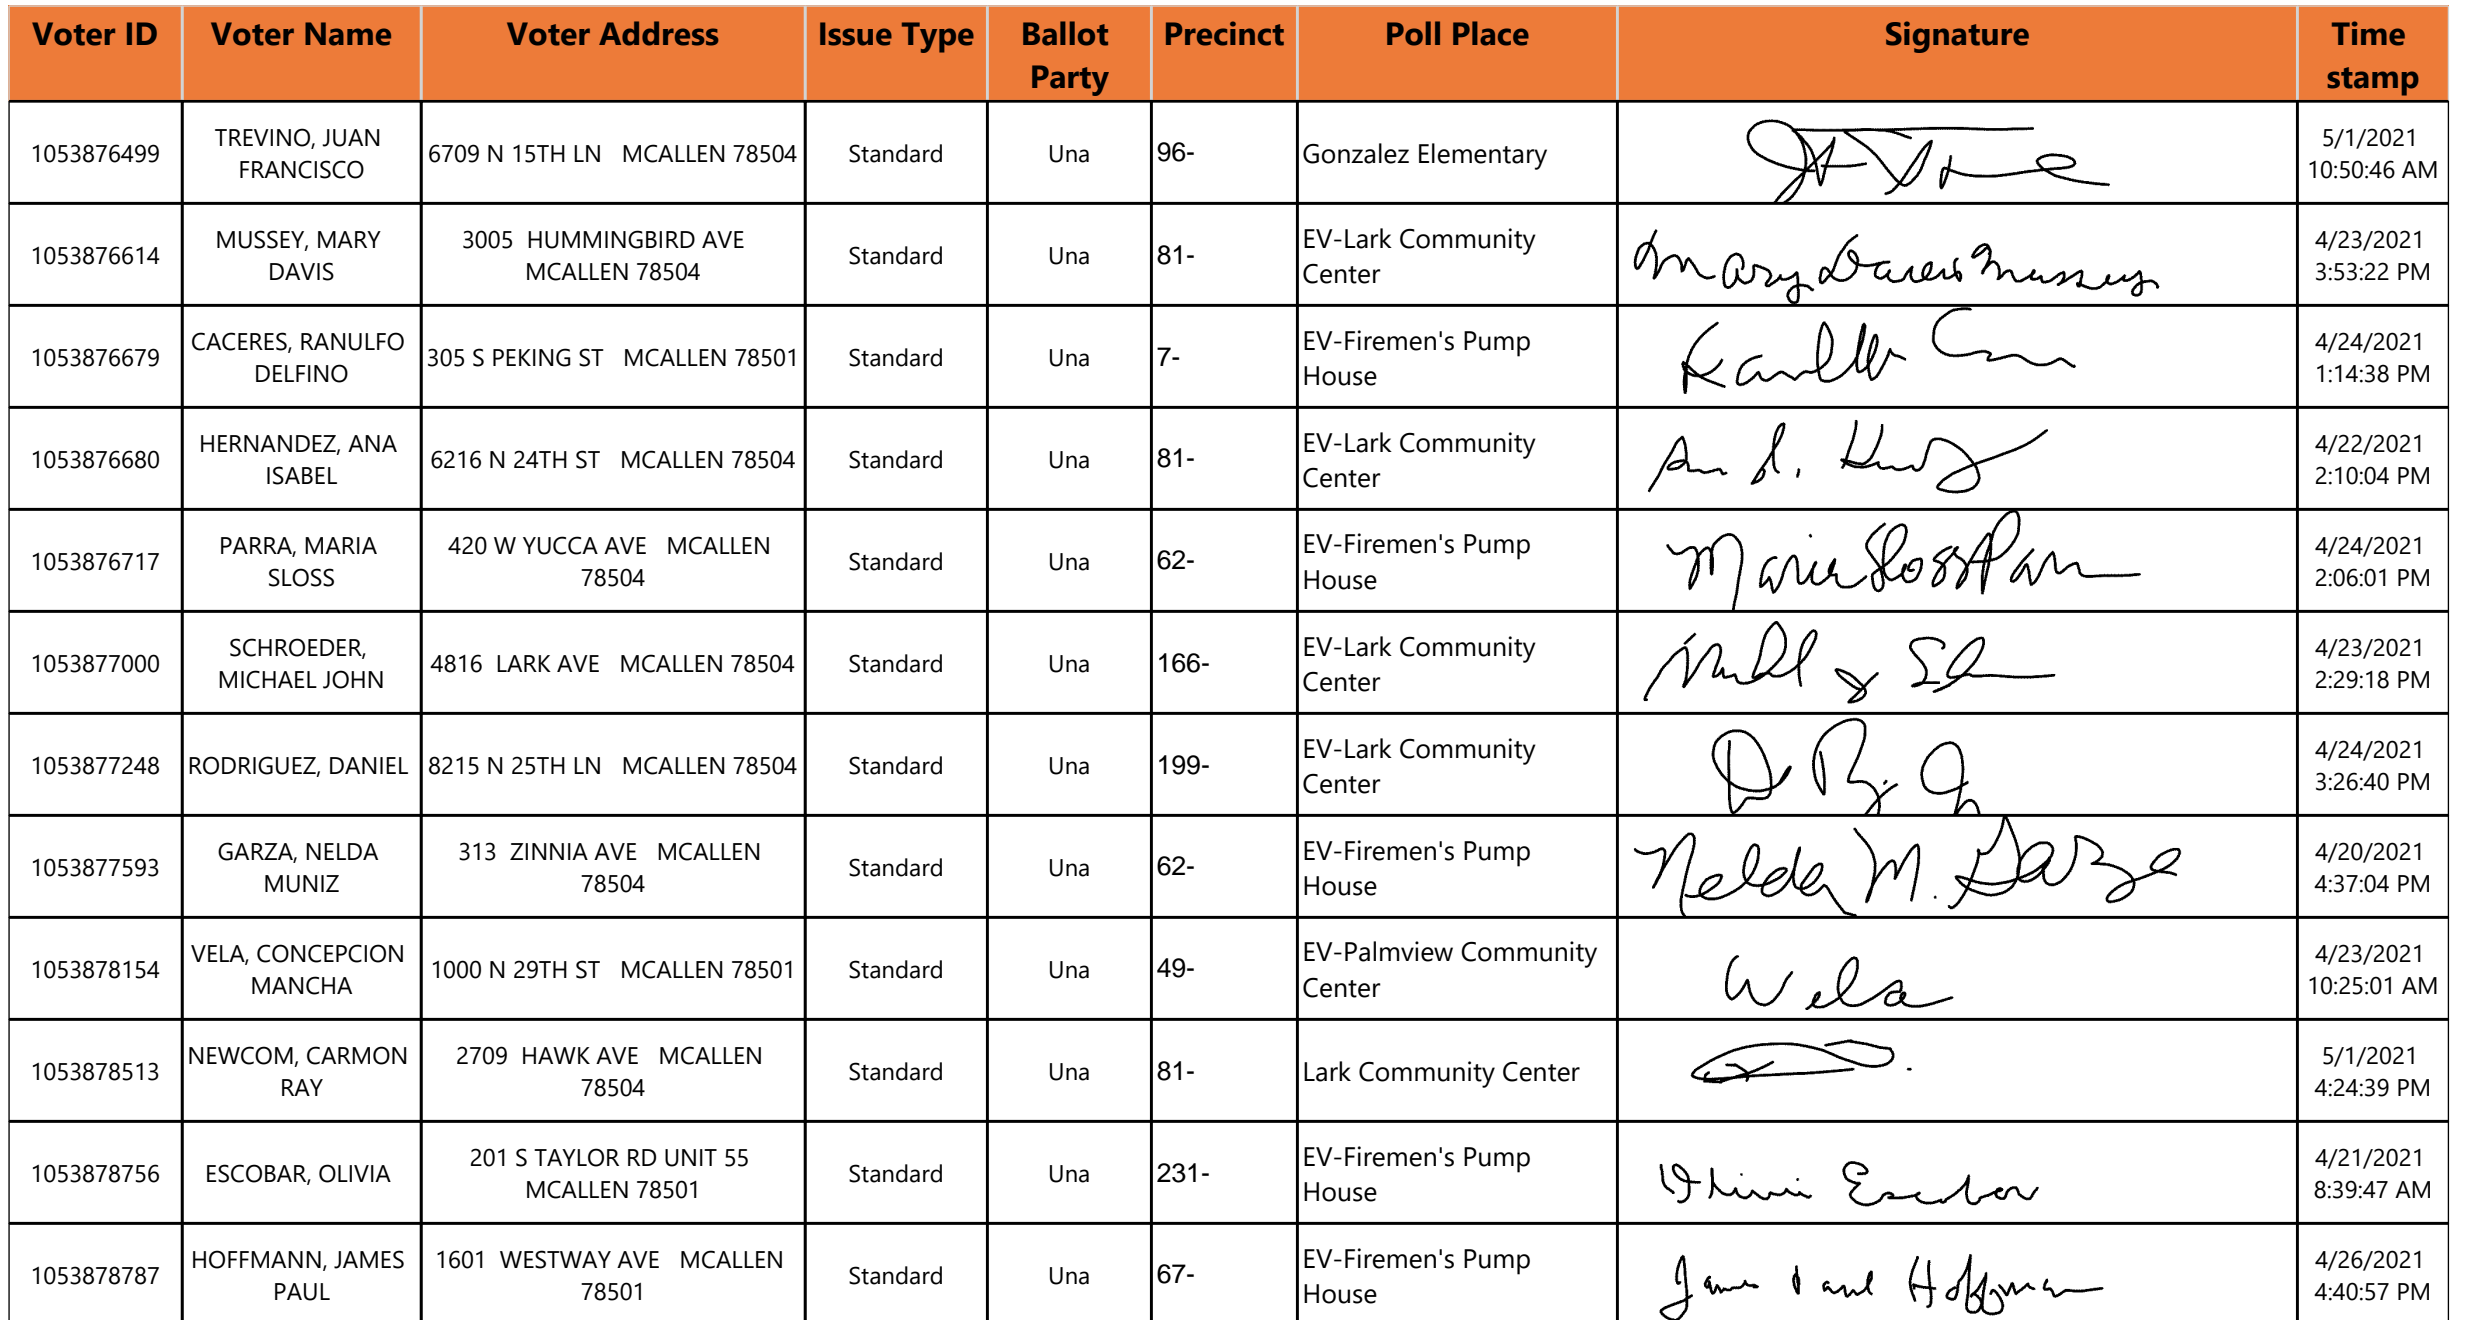 Voter ID Voter Name Voter Address Issue Type Ballot Party Precinct Poll Place Signature Time stamp
1053876499 TREVINO, JUAN FRANCISCO 6709 N 15TH LN MCALLEN 78504 Standard Una 96- Gonzalez Elementary 5/1/2021 10:50:46 AM
1053876614 MUSSEY, MARY DAVIS 3005 HUMMINGBIRD AVE MCALLEN 78504 Standard Una 81- EV-Lark Community Center Mary Davis Mussey 4/23/2021 3:53:22 PM
1053876679 CACERES, RANULFO DELFINO 305 S PEKING ST MCALLEN 78501 Standard Una 7- EV-Firemen's Pump House 4/24/2021 1:14:38 PM
1053876680 HERNANDEZ, ANA ISABEL 6216 N 24TH ST MCALLEN 78504 Standard Una 81- EV-Lark Community Center 4/22/2021 2:10:04 PM
1053876717 PARRA, MARIA SLOSS 420 W YUCCA AVE MCALLEN 78504 Standard Una 62- EV-Firemen's Pump House Maria Sloss Parra 4/24/2021 2:06:01 PM
1053877000 SCHROEDER, MICHAEL JOHN 4816 LARK AVE MCALLEN 78504 Standard Una 166- EV-Lark Community Center 4/23/2021 2:29:18 PM
1053877248 RODRIGUEZ, DANIEL 8215 N 25TH LN MCALLEN 78504 Standard Una 199- EV-Lark Community Center 4/24/2021 3:26:40 PM
1053877593 GARZA, NELDA MUNIZ 313 ZINNIA AVE MCALLEN 78504 Standard Una 62- EV-Firemen's Pump House Nelda M. Garza 4/20/2021 4:37:04 PM
1053878154 VELA, CONCEPCION MANCHA 1000 N 29TH ST MCALLEN 78501 Standard Una 49- EV-Palmview Community Center 4/23/2021 10:25:01 AM
1053878513 NEWCOM, CARMON RAY 2709 HAWK AVE MCALLEN 78504 Standard Una 81- Lark Community Center 5/1/2021 4:24:39 PM
1053878756 ESCOBAR, OLIVIA 201 S TAYLOR RD UNIT 55 MCALLEN 78501 Standard Una 231- EV-Firemen's Pump House Olivia Escobar 4/21/2021 8:39:47 AM
1053878787 HOFFMANN, JAMES PAUL 1601 WESTWAY AVE MCALLEN 78501 Standard Una 67- EV-Firemen's Pump House James Paul Hoffmann 4/26/2021 4:40:57 PM